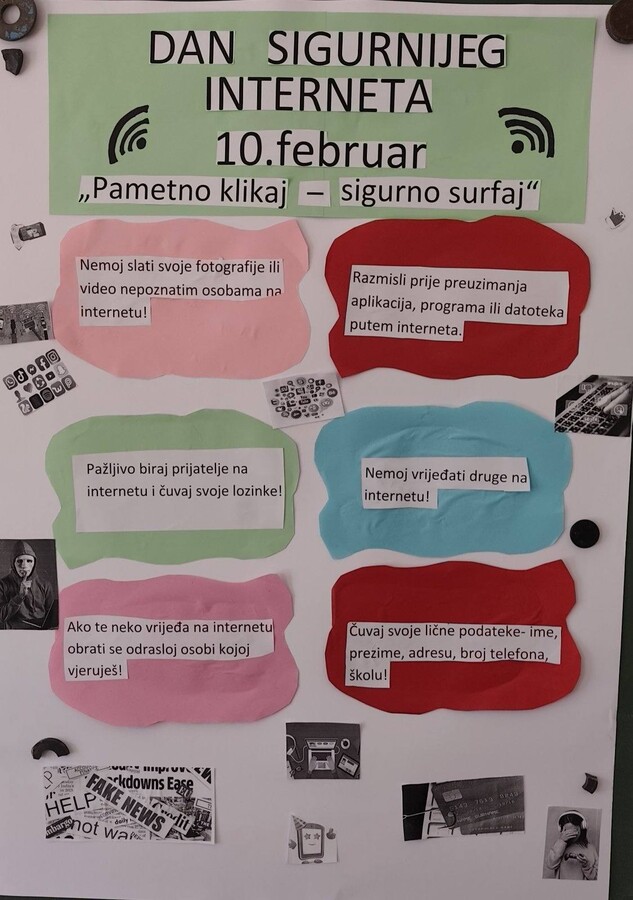 DAN SIGURNIJEG
INTERNETA
10.februar
„Pametno klikaj – sigurno surfaj“
Nemoj slati svoje fotografije ili
video nepoznatim osobama na
internetu!
Razmisli prije preuzimanja
aplikacija, programa ili datoteka
putem interneta.
Pažljivo biraj prijatelje na
internetu i čuvaj svoje lozinke!
Nemoj vrijeđati druge na
internetu!
Ako te neko vrijeđa na internetu
obrati se odrasloj osobi kojoj
vjeruješ!
Čuvaj svoje lične podateke- ime,
prezime, adresu, broj telefona,
školu!
ckdowns Ease
HELP
FAKE NEWS
not wa